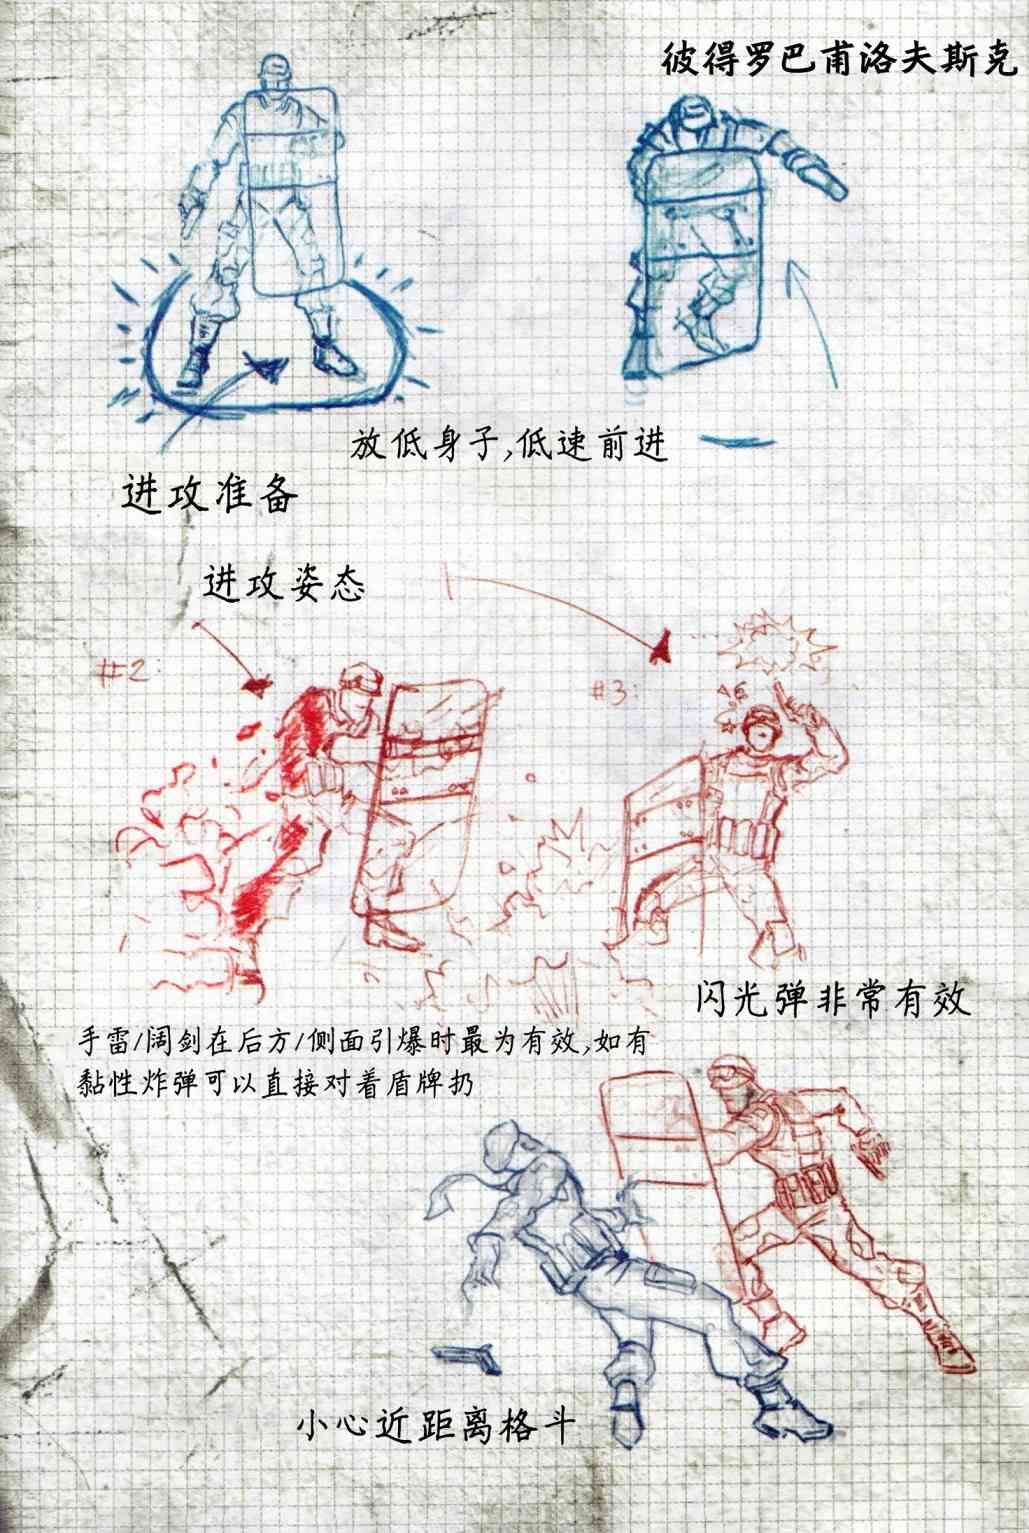 彼得罗巴甫洛夫斯克
放低身子,低速前进
进攻准备
进攻姿态
#2:
#3:
闪光弹非常有效
手雷/阔剑在后方/侧面引爆时最为有效,如有
黏性炸弹可以直接对着盾牌扔
小心近距离格斗